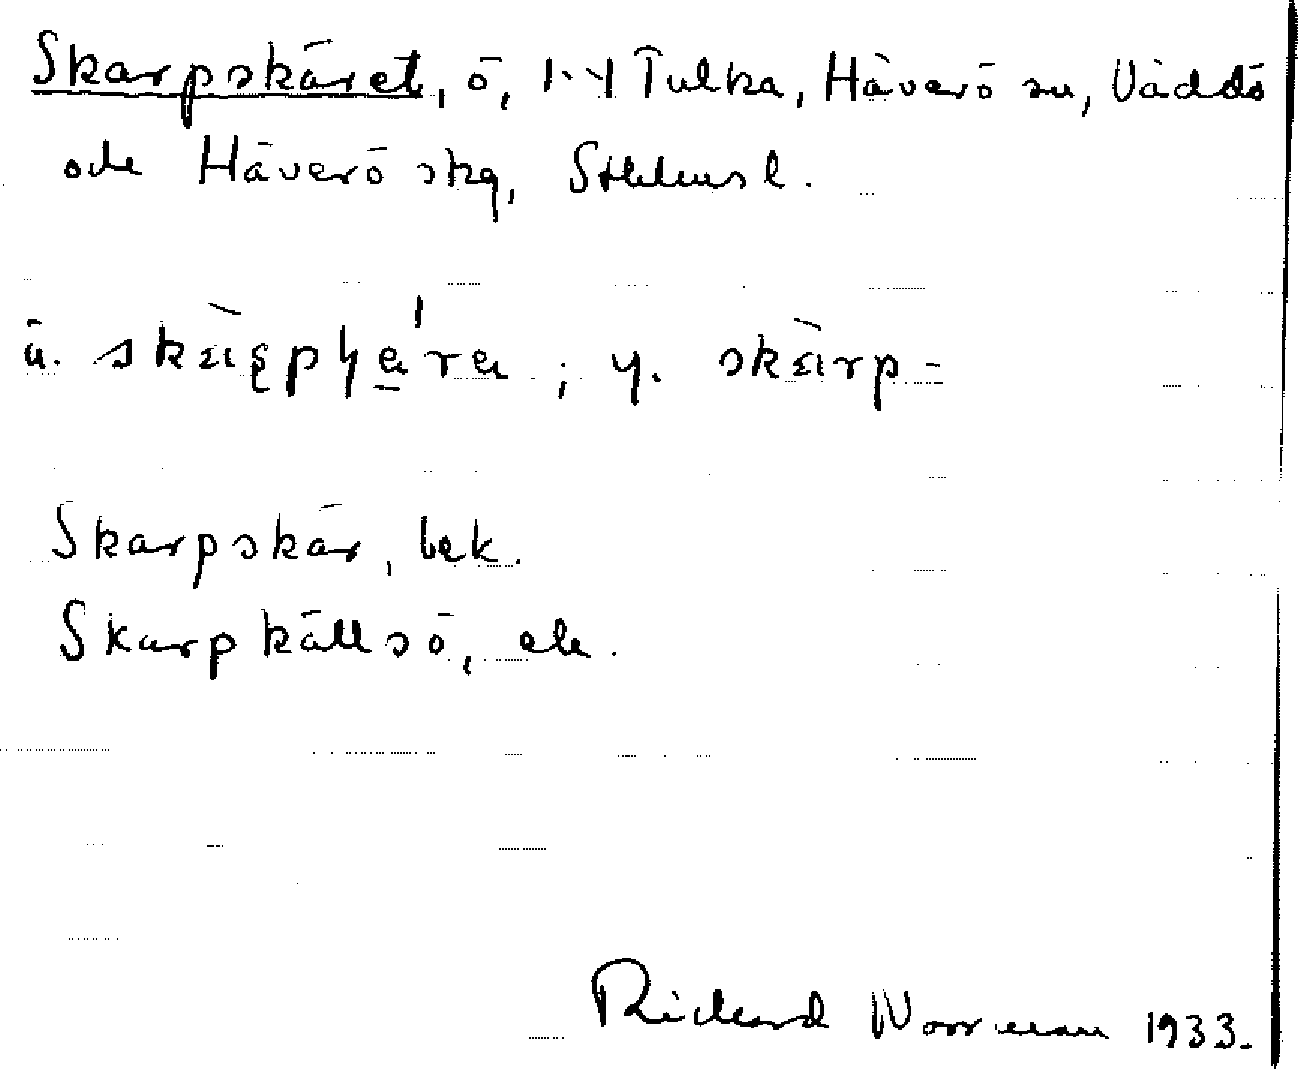 Skarpskäret, ö, 1:4 Tulka, Häverö sn, Väddö
och Häverö skg, Sthlms l.
ä. ; y.
Skarpskär, bek.
Skarpkällsö, ek.
Richard Norrman 1933.